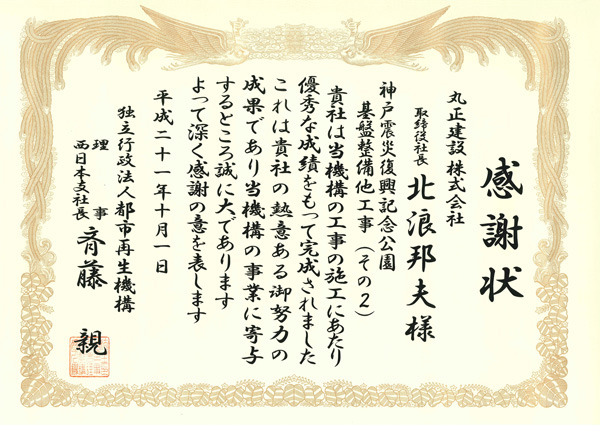 感謝状
丸正建設株式会社
取締役社長 北浪邦夫様
神戸震災復興記念公園
基盤整備他工事（その2）
貴社は当機構の工事の施工にあたり
優秀な成績をもって完成されました
これは貴社の熱意ある御努力の
成果であり当機構の事業に寄与
するところ誠に大であります
よって深く感謝の意を表します
平成二十一年十月一日
独立行政法人都市再生機構
理事
西日本支社長 斉藤 親